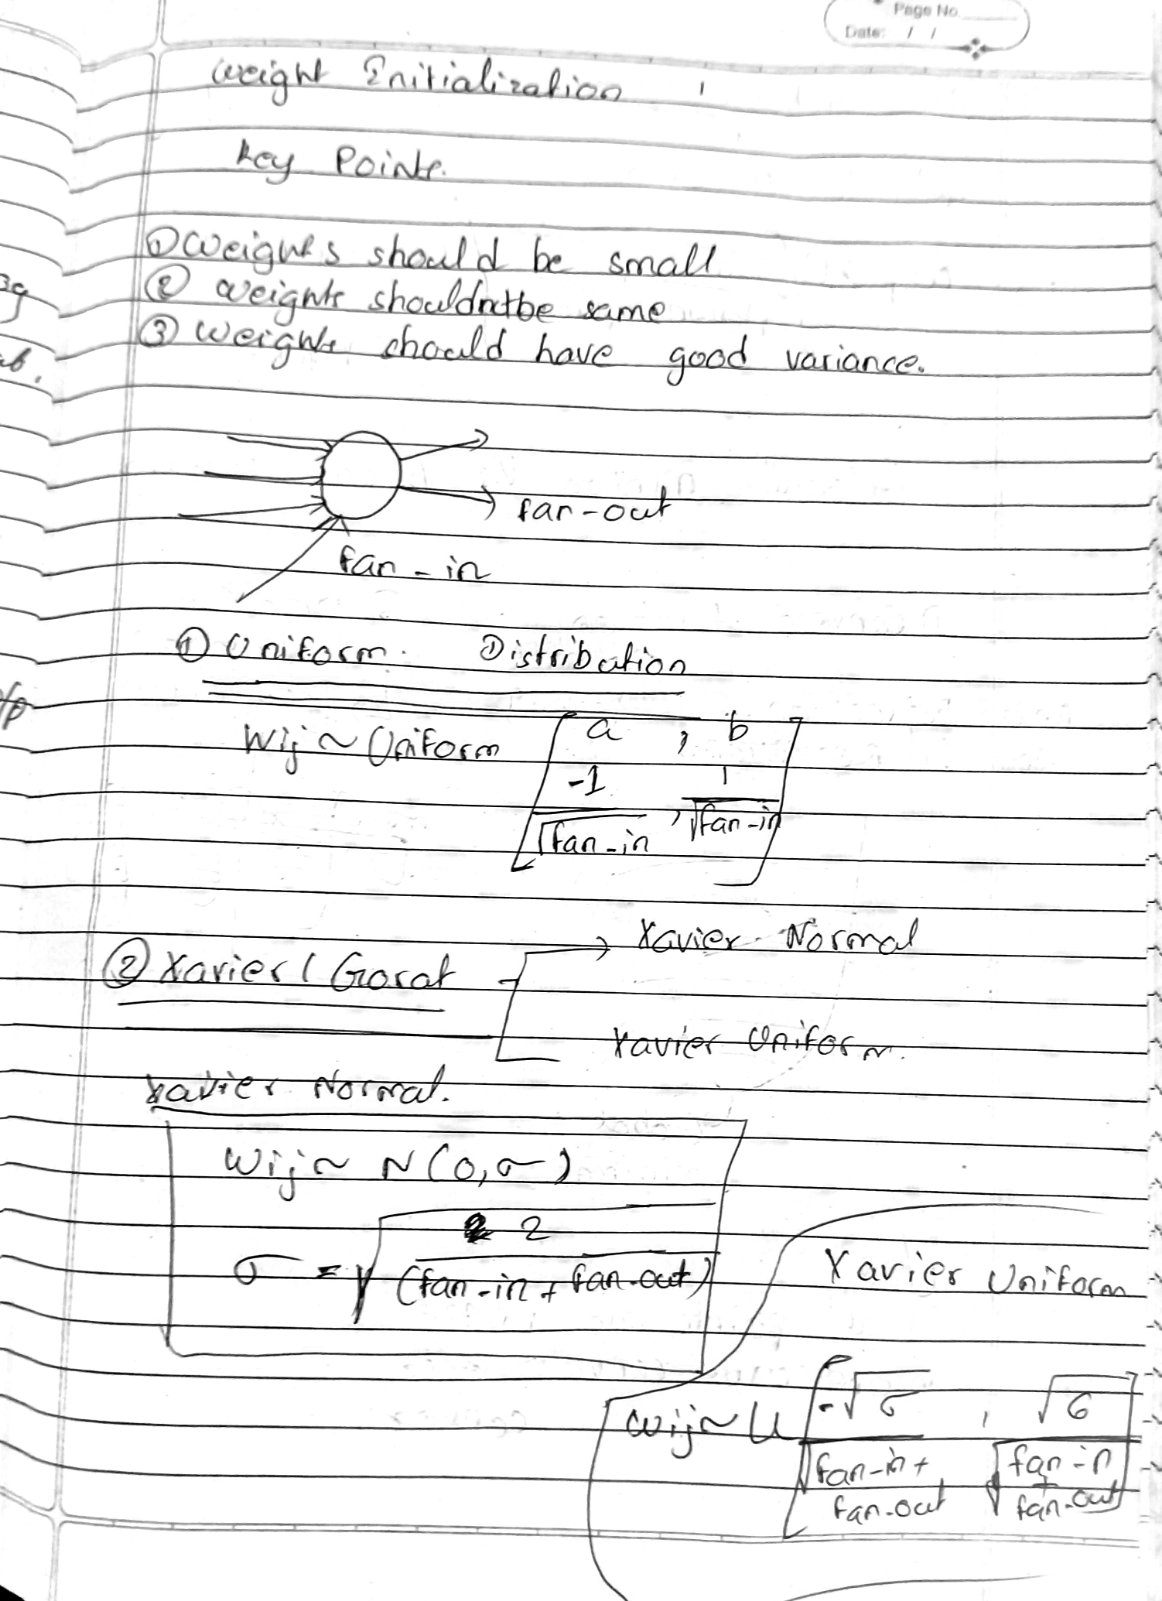 Page No
Date: / /
weight Initialization
key Points.
① weights should be small
② weights shouldn't be same
③ weights should have good variance.
fan-out
fan-in
① Uniform Distribution
Wij ~ Uniform [a, b
-1/√fan-in, 1/√fan-in]
② Xavier / Gorat
Xavier Normal
Xavier Uniform.
Xavier Normal.
Wij ~ N(0,σ)
σ = √2/(fan-in + fan-out)
Xavier Uniform
Wij ~ U[-√6/√fan-in + fan-out, √6/√fan-in + fan-out]